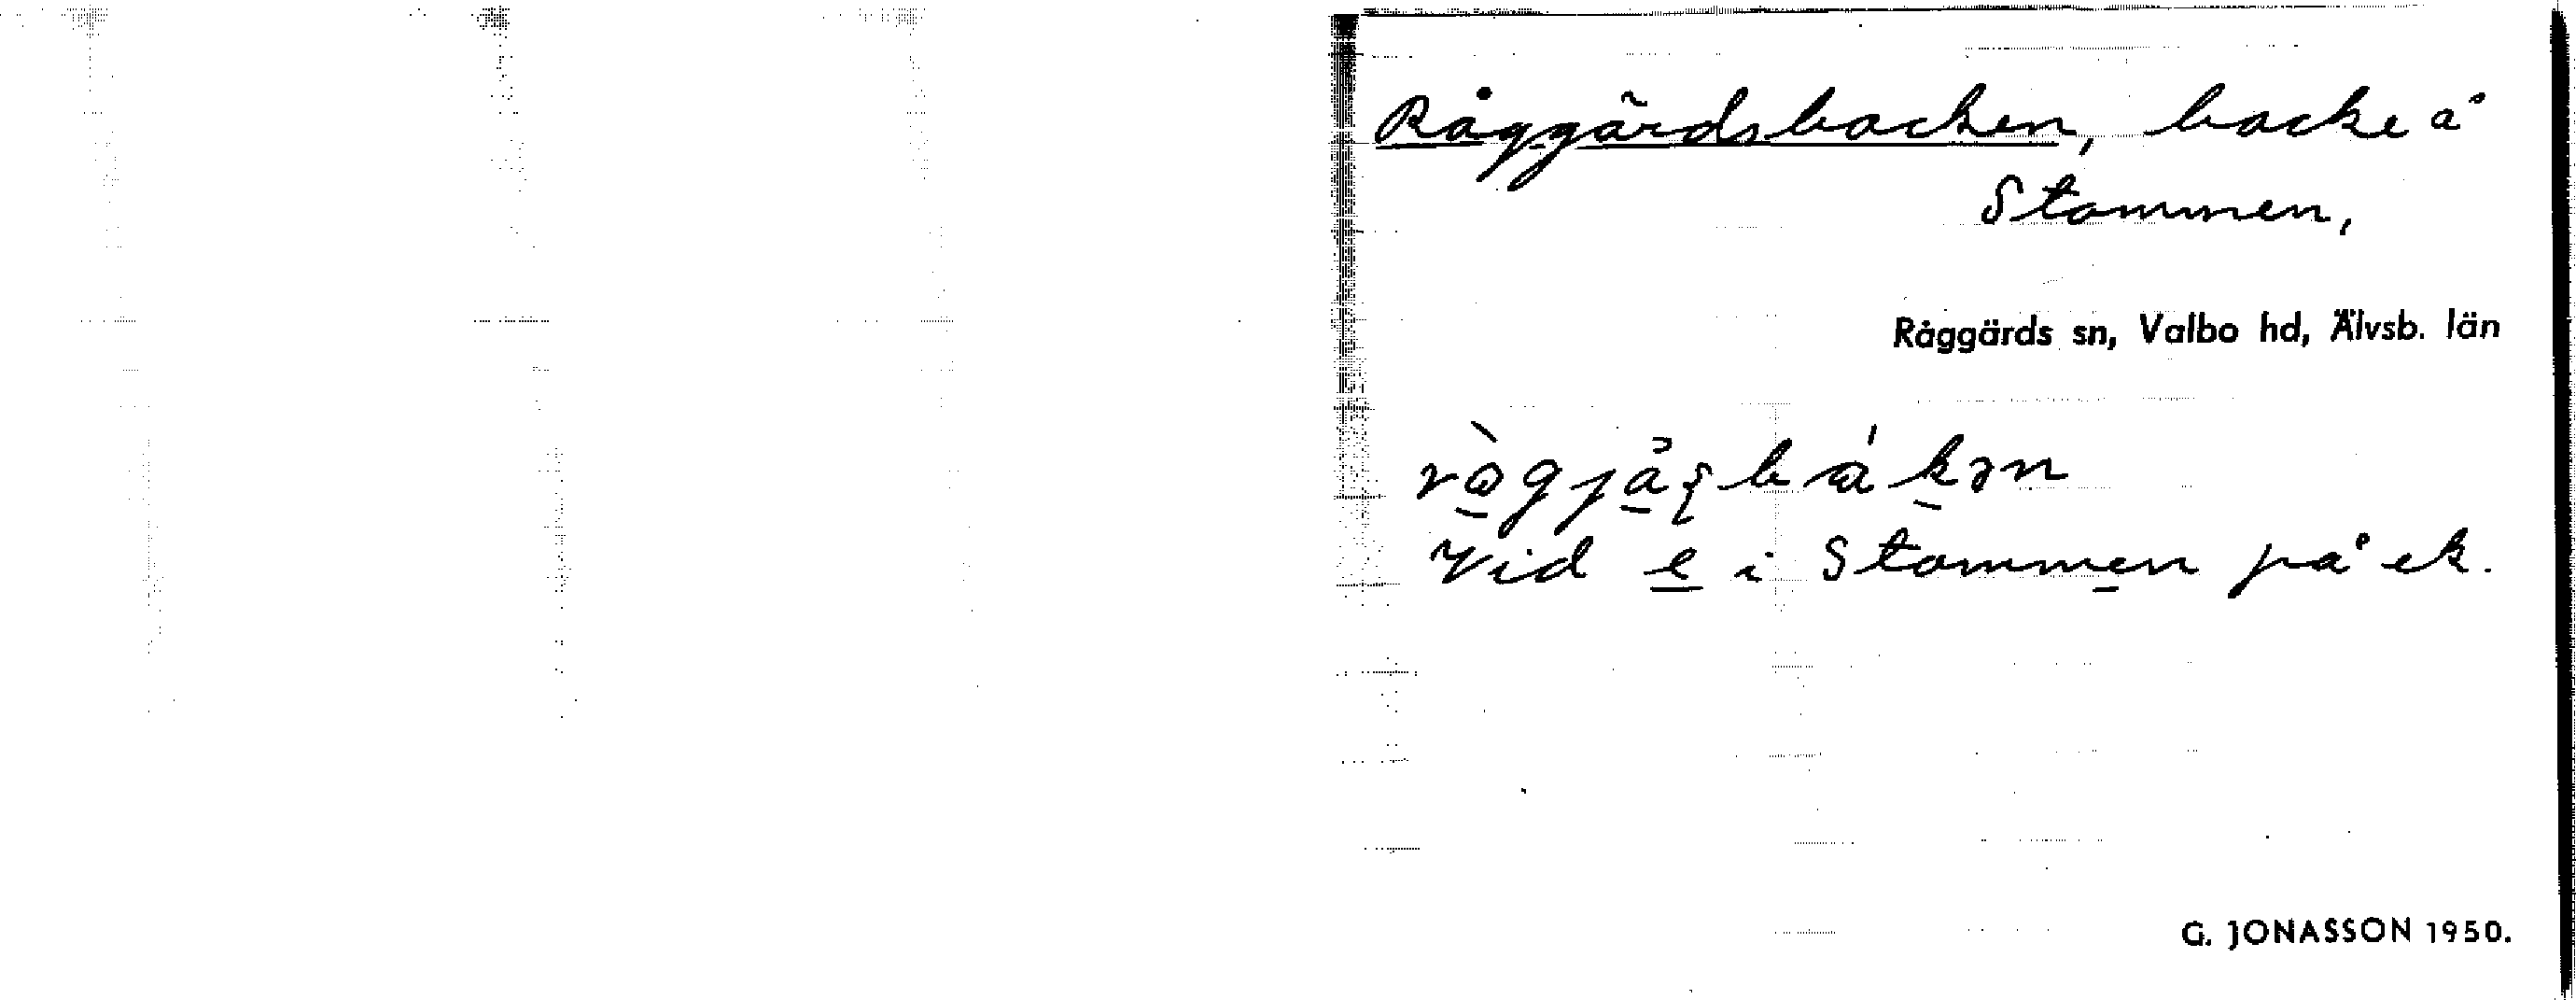 Råggärdsbacken, backe å
Stommen,
Råggärds sn, Valbo hd, Älvsb. län
Vid e i Stommen på ek.
G. JONASSON 1950.